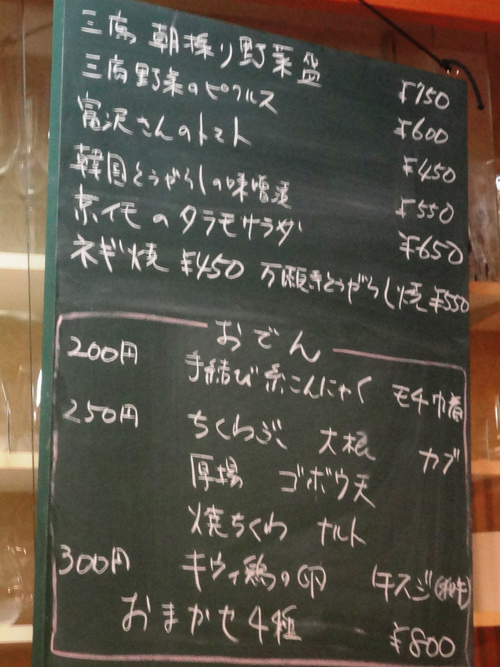 三崎 朝採り野菜盛 ¥750
三崎野菜のピクルス ¥600
富沢さんのトマト ¥450
韓国とうがらしの味噌漬 ¥550
京イモのタラモサラダ ¥650
ネギ焼 ¥450 万願寺とうがらし焼 ¥550
おでん
200円 手結び糸こんにゃく モチ巾着
250円 ちくわぶ 大根 カブ
厚揚 ゴボウ天
焼ちくわ ナルト
300円 キウイ鶏の卵 牛スジ(和牛)
おまかせ4種 ¥800